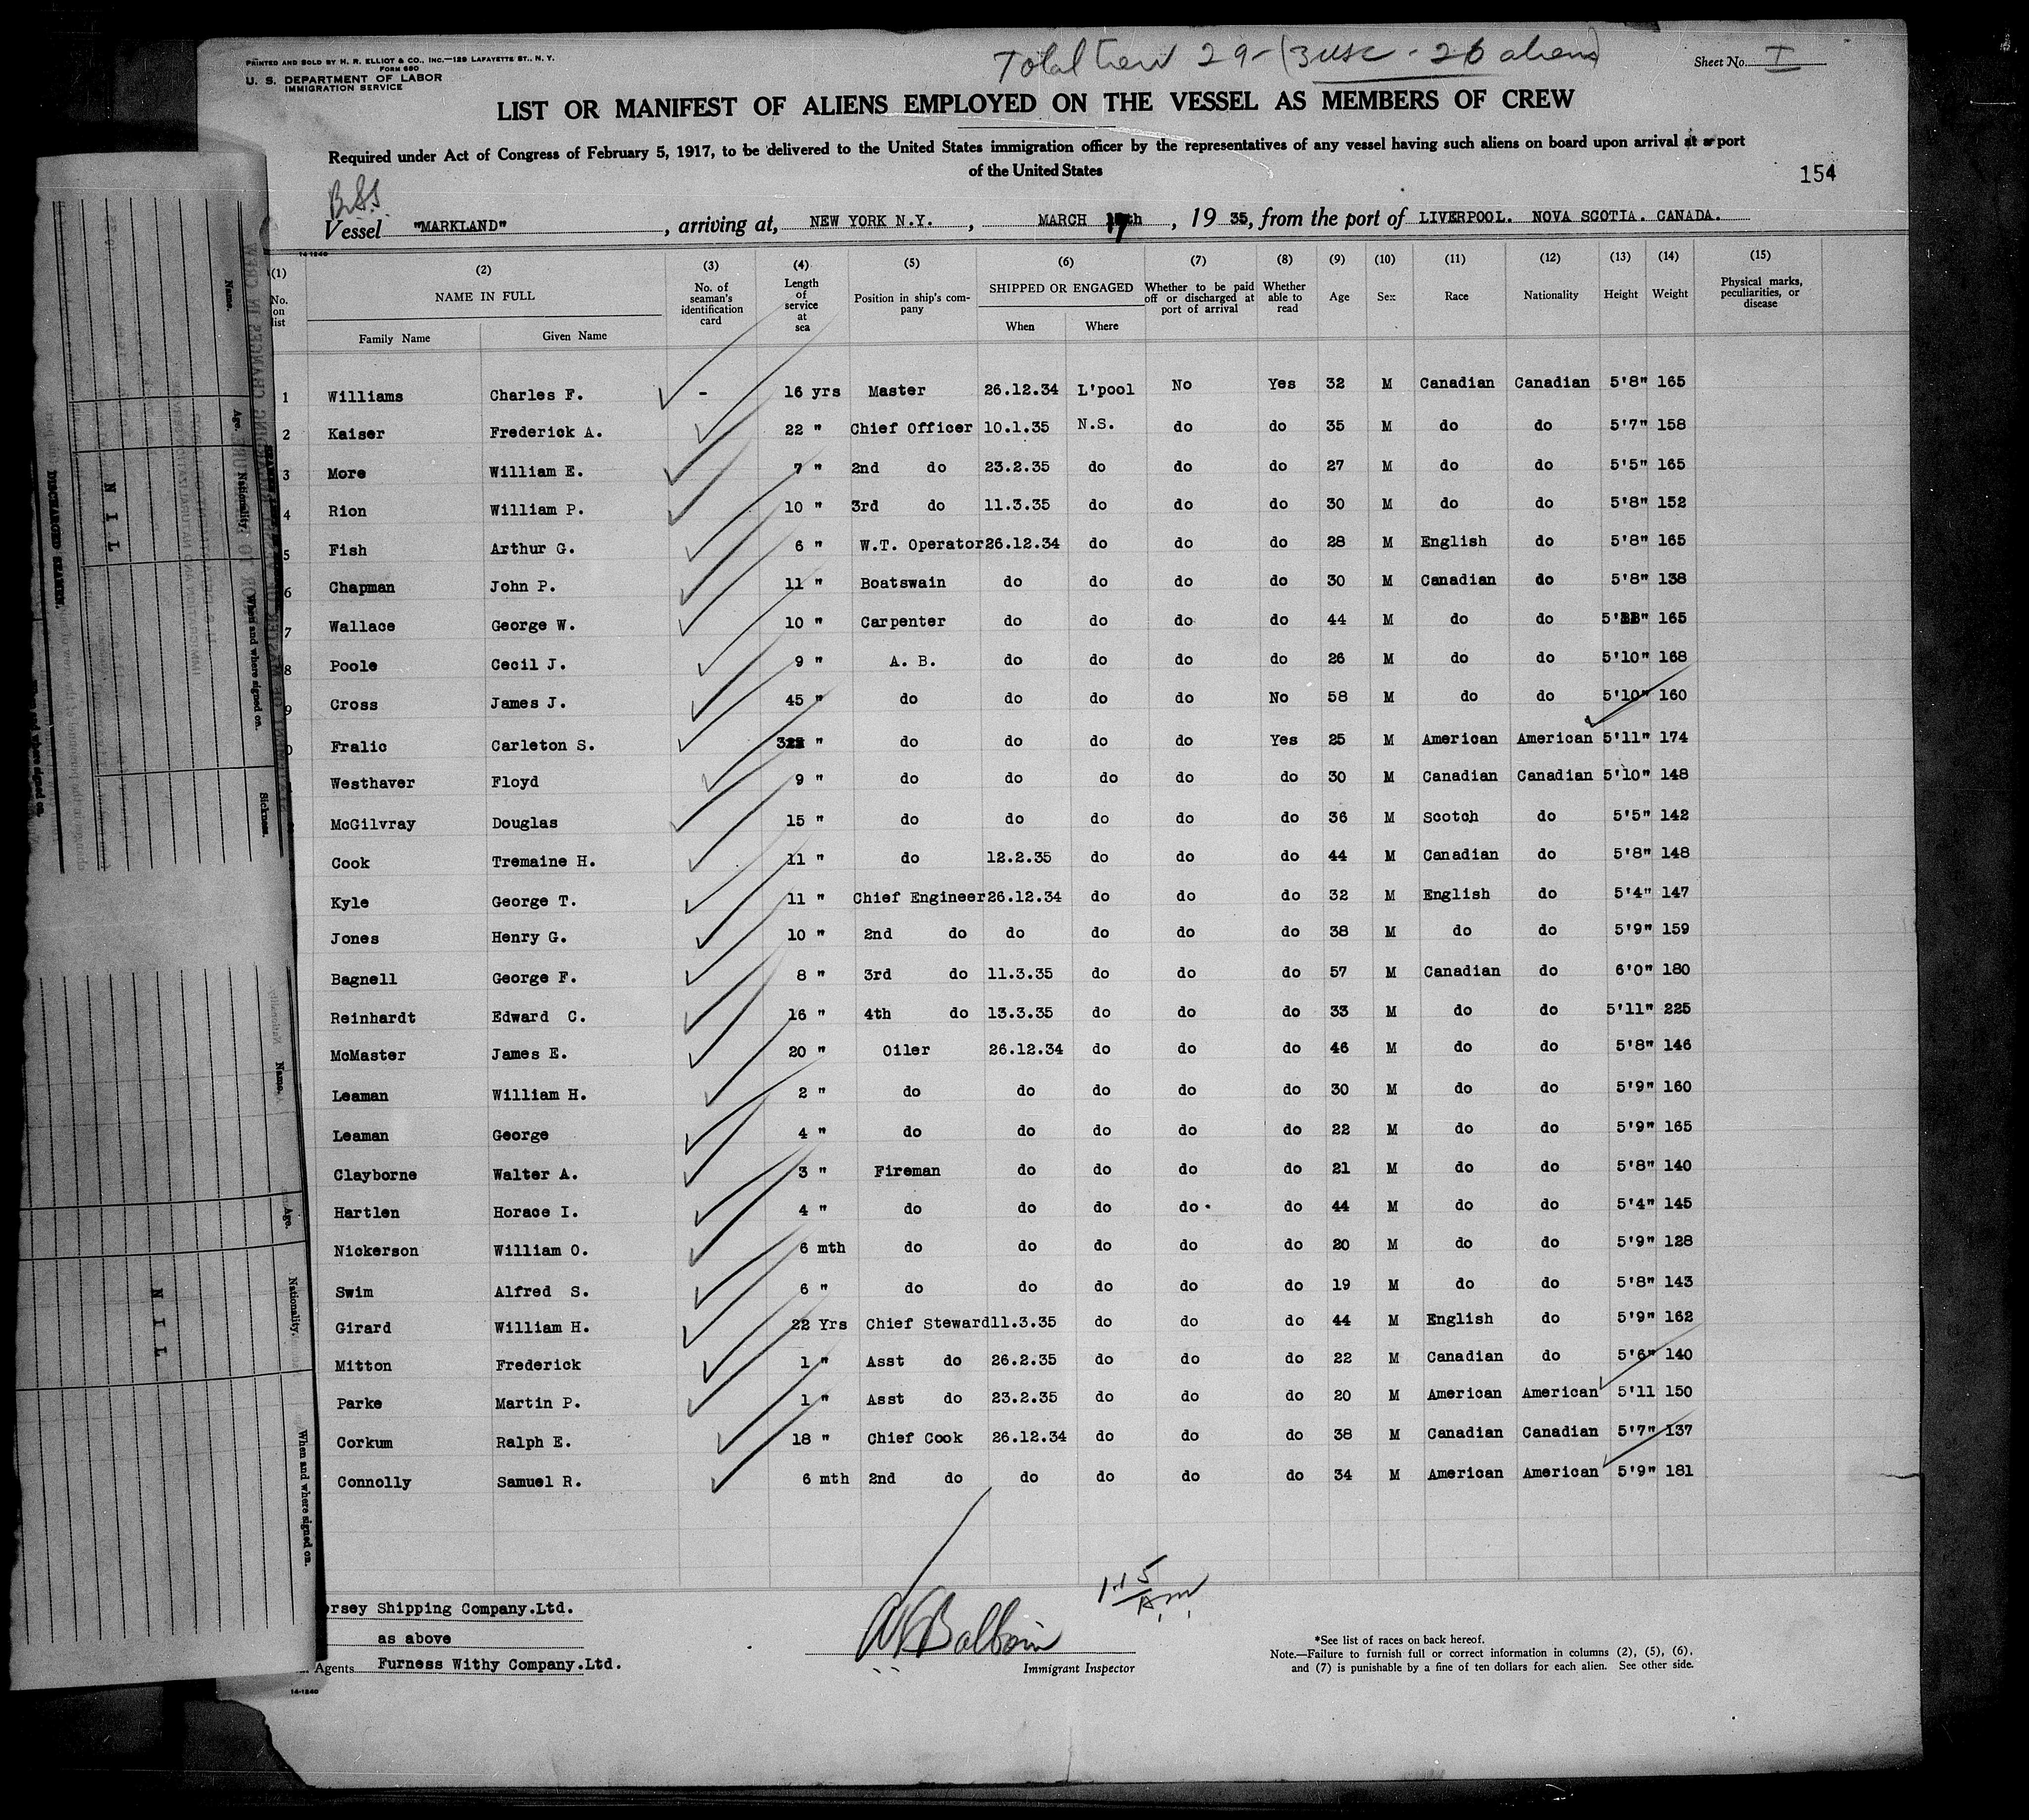 Total Crew 29 - (3 USC - 26 aliens)
PRINTED AND SOLD BY H. R. ELLIOT & CO., INC.—129 LAFAYETTE ST., N. Y.
FORM 680
U. S. DEPARTMENT OF LABOR
IMMIGRATION SERVICE
Sheet No. I
LIST OR MANIFEST OF ALIENS EMPLOYED ON THE VESSEL AS MEMBERS OF CREW
Required under Act of Congress of February 5, 1917, to be delivered to the United States immigration officer by the representatives of any vessel having such aliens on board upon arrival at a port
of the United States
154
Br.S.S
Vessel "MARKLAND", arriving at, NEW YORK N.Y., MARCH 17th, 1935, from the port of LIVERPOOL. NOVA SCOTIA. CANADA.
14-1240
(1) (2) (3) (4) (5) (6) (7) (8) (9) (10) (11) (12) (13) (14) (15)
No. on list NAME IN FULL No. of seaman's identification card Length of service at sea Position in ship's company SHIPPED OR ENGAGED Whether to be paid off or discharged at port of arrival Whether able to read Age Sex Race Nationality Height Weight Physical marks, peculiarities, or disease
Family Name Given Name When Where
1 Williams Charles F. - 16 yrs Master 26.12.34 L'pool No Yes 32 M Canadian Canadian 5'8" 165
2 Kaiser Frederick A. 22 " Chief Officer 10.1.35 N.S. do do 35 M do do 5'7" 158
3 More William E. 7 " 2nd do 23.2.35 do do do 27 M do do 5'5" 165
4 Rion William P. 10 " 3rd do 11.3.35 do do do 30 M do do 5'8" 152
5 Fish Arthur G. 6 " W.T. Operator 26.12.34 do do do 28 M English do 5'8" 165
6 Chapman John P. 11 " Boatswain do do do do 30 M Canadian do 5'8" 138
7 Wallace George W. 10 " Carpenter do do do do 44 M do do 165
8 Poole Cecil J. 9 " A. B. do do do do 26 M do do 5'10" 168
9 Cross James J. 45 " do do do do No 58 M do do 5'10" 160
0 Fralic Carleton S. " do do do do Yes 25 M American American 5'11" 174
Westhaver Floyd 9 " do do do do do 30 M Canadian Canadian 5'10" 148
McGilvray Douglas 15 " do do do do do 36 M Scotch do 5'5" 142
Cook Tremaine H. 11 " do 12.2.35 do do do 44 M Canadian do 5'8" 148
Kyle George T. 11 " Chief Engineer 26.12.34 do do do 32 M English do 5'4" 147
Jones Henry G. 10 " 2nd do do do do do 38 M do do 5'9" 159
Bagnell George F. 8 " 3rd do 11.3.35 do do do 57 M Canadian do 6'0" 180
Reinhardt Edward C. 16 " 4th do 13.3.35 do do do 33 M do do 5'11" 225
McMaster James E. 20 " Oiler 26.12.34 do do do 46 M do do 5'8" 146
Leaman William H. 2 " do do do do do 30 M do do 5'9" 160
Leaman George 4 " do do do do do 22 M do do 5'9" 165
Clayborne Walter A. 3 " Fireman do do do do 21 M do do 5'8" 140
Hartlen Horace I. 4 " do do do do do 44 M do do 5'4" 145
Nickerson William O. 6 mth do do do do do 20 M do do 5'9" 128
Swim Alfred S. 6 " do do do do do 19 M do do 5'8" 143
Girard William H. 22 Yrs Chief Steward 11.3.35 do do do 44 M English do 5'9" 162
Mitton Frederick 1 " Asst do 26.2.35 do do do 22 M Canadian do 5'6" 140
Parke Martin P. 1 " Asst do 23.2.35 do do do 20 M American American 5'11 150
Corkum Ralph E. 18 " Chief Cook 26.12.34 do do do 38 M Canadian Canadian 5'7" 137
Connolly Samuel R. 6 mth 2nd do do do do do 34 M American American 5'9" 181
ersey Shipping Company.Ltd.
as above
Agents Furness Withy Company.Ltd.
14-1240
1.15 A.M.
Immigrant Inspector
*See list of races on back hereof.
Note.—Failure to furnish full or correct information in columns (2), (5), (6),
and (7) is punishable by a fine of ten dollars for each alien. See other side.
Name.
Age.
Nationality.
When and where signed on.
Sickness.
N I L
DISCHARGED SEAMEN.
Name.
Age.
Nationality.
When and where signed on.
N I L